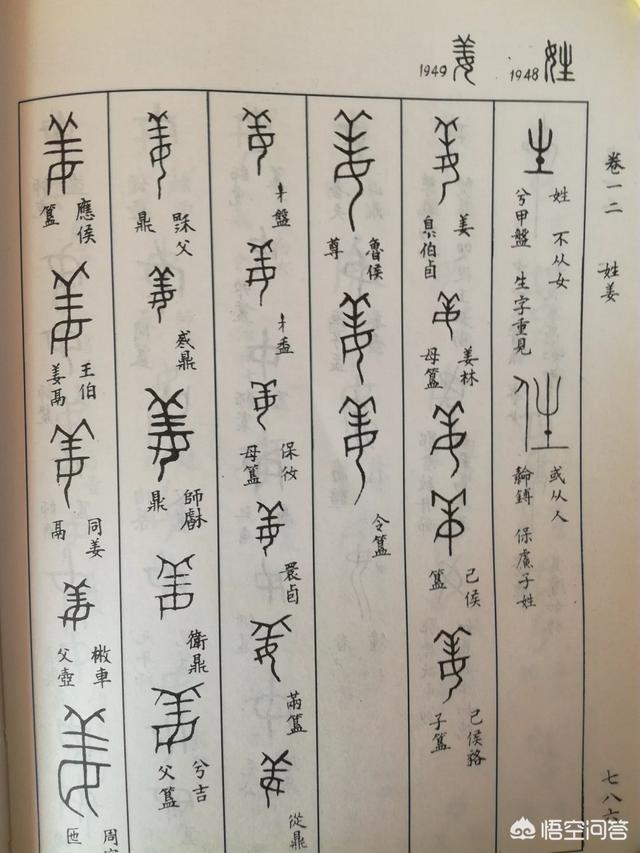 姓 1948
姜 1949
卷一二 姓姜
七八六
姓 不从女
兮甲盤 生字重見
或从人
鎛 保子姓
姜
伯卣
姜林
母簋
己侯
簋
己侯貉
子簋
魯侯
尊
令簋
盤
盉
保
母簋
睘卣
簋
從鼎
父
鼎
鼎
師
鼎
衛鼎
兮吉
父簋
應侯
簋
王伯
姜鬲
同姜
鬲
車
父壺
匜
悟空问答